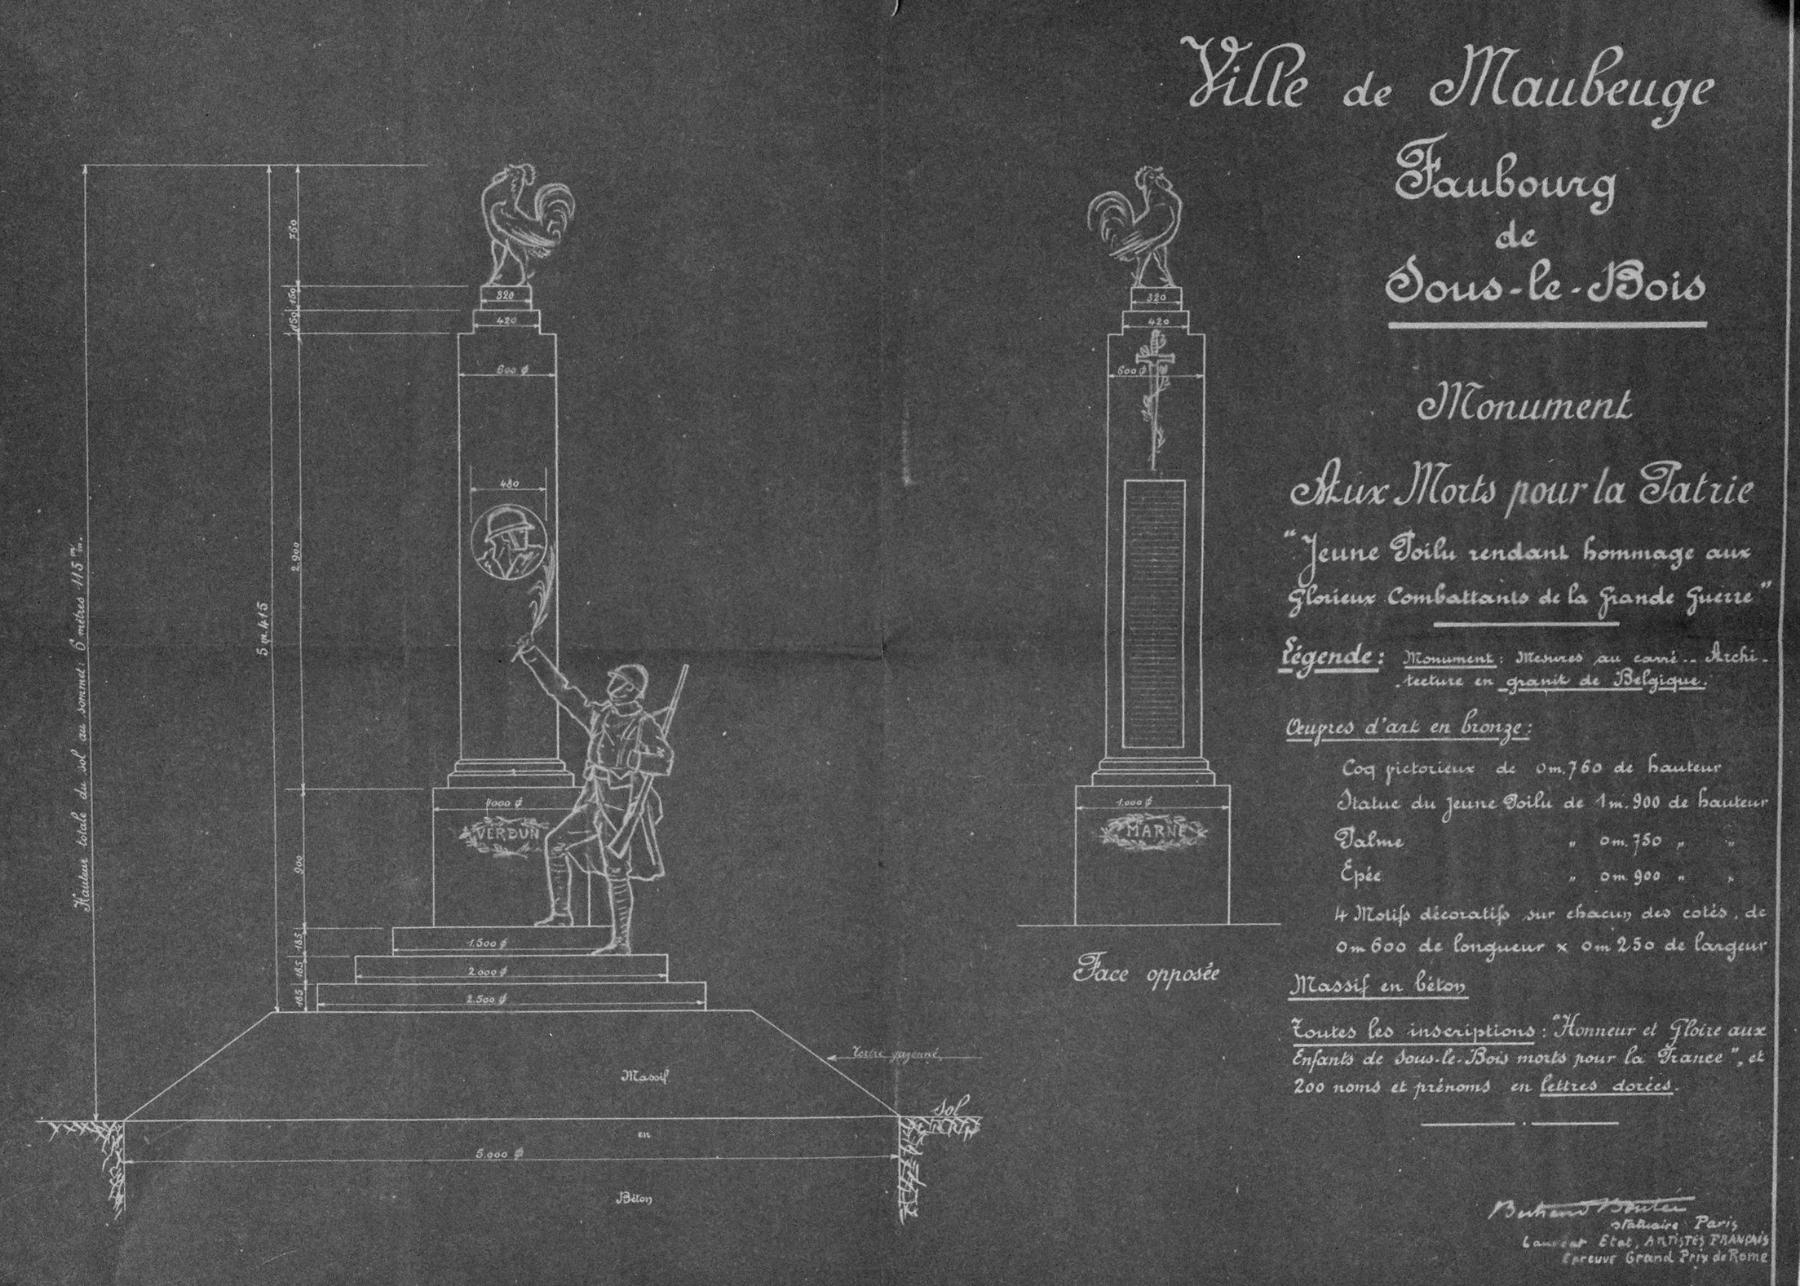 Ville de Maubeuge
Faubourg
de
Sous-le-Bois
Monument
Aux Morts pour la Patrie
"Jeune Poilu rendant hommage aux
Glorieux Combattants de la Grande Guerre"
Légende: Monument: Mesures au carré. - Archi-
tecture en granit de Belgique.
Œuvres d'art en bronze:
Coq victorieux de 0m,760 de hauteur
Statue du jeune Poilu de 1m.900 de hauteur
Palme " 0m.750 " "
Epée " 0m.900 " "
4 Motifs décoratifs sur chacun des cotés, de
0m600 de longueur x 0m250 de largeur
Massif en béton
Toutes les inscriptions: "Honneur et Gloire aux
Enfants de Sous-le-Bois morts pour la France", et
200 noms et prénoms en lettres dorées.
Statuaire Paris
Lauréat Etat, ARTISTES FRANÇAIS
Epreuve Grand Prix de Rome
Hauteur totale du sol au sommet: 6 mètres 115 m/m.
5m.415
760
150
150
2.900
900
185
185
185
320
420
600 ϕ
480
1000 ϕ
VERDUN
1.500 ϕ
2.000 ϕ
2.500 ϕ
Tertre gazonné
Massif
Sol
en
5.000 ϕ
Béton
320
420
600 ϕ
1.000 ϕ
MARNE
Face opposée